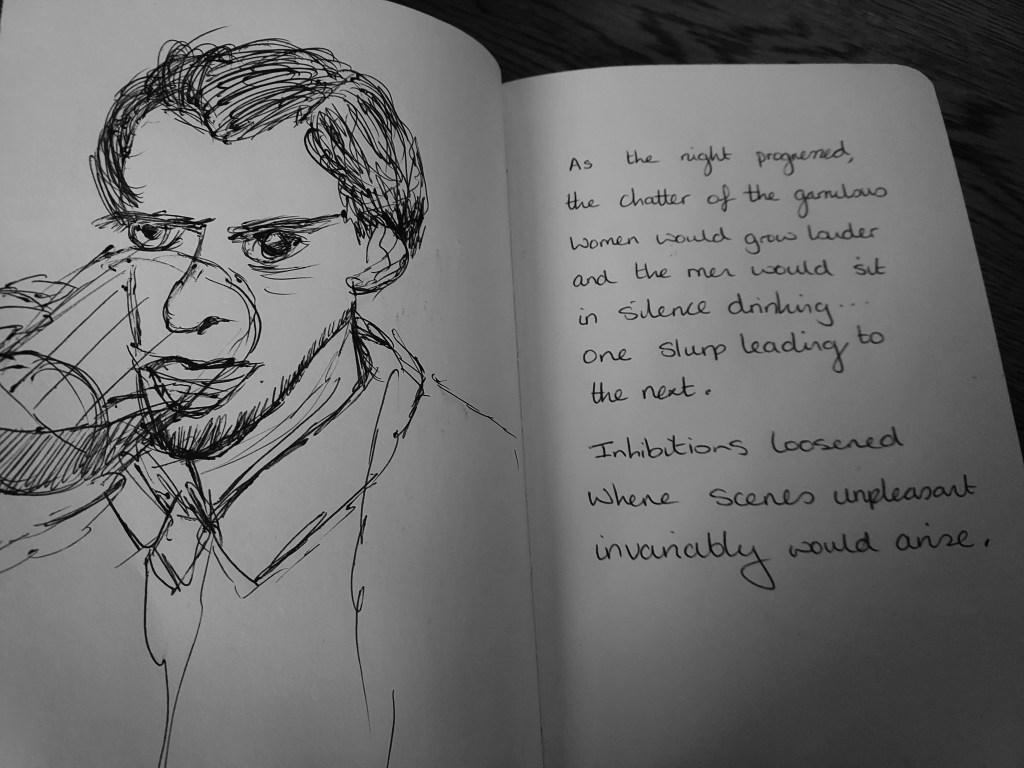 As the night progressed,
the chatter of the garrulous
women would grow louder
and the men would sit
in silence drinking...
one slurp leading to
the next.
Inhibitions loosened
where scenes unpleasant
invariably would arise.